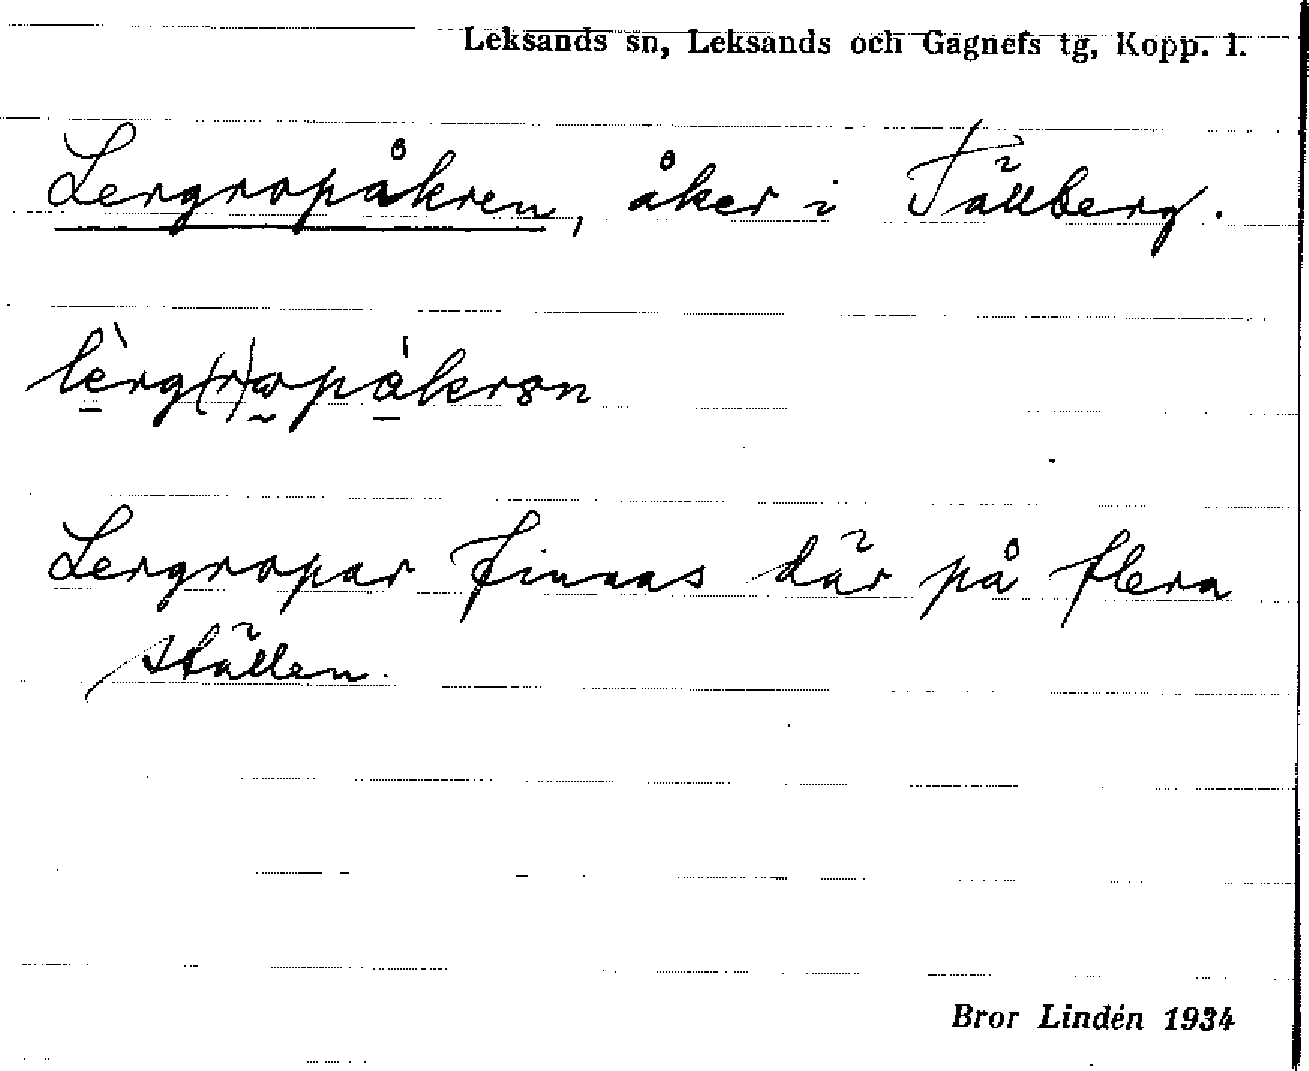 Leksands sn, Leksands och Gagnefs tg, Kopp. l.
Lergropåkren, åker i Tällberg.
lèrg(r)opåkrən
Lergropar finnas där på flera
ställen.
Bror Lindén 1934